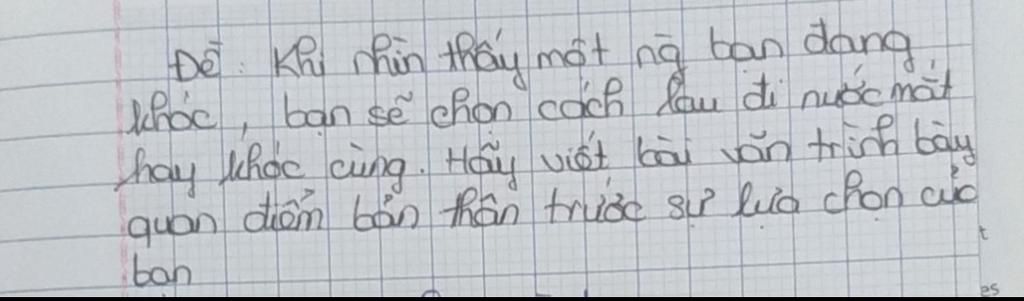 Đề: Khi nhìn thấy một ng bạn đang
khóc, bạn sẽ chọn cách lau đi nước mắt
hay khóc cùng. Hãy viết bài văn trình bày
quan điểm bản thân trước sự lựa chọn của
bạn
t
es